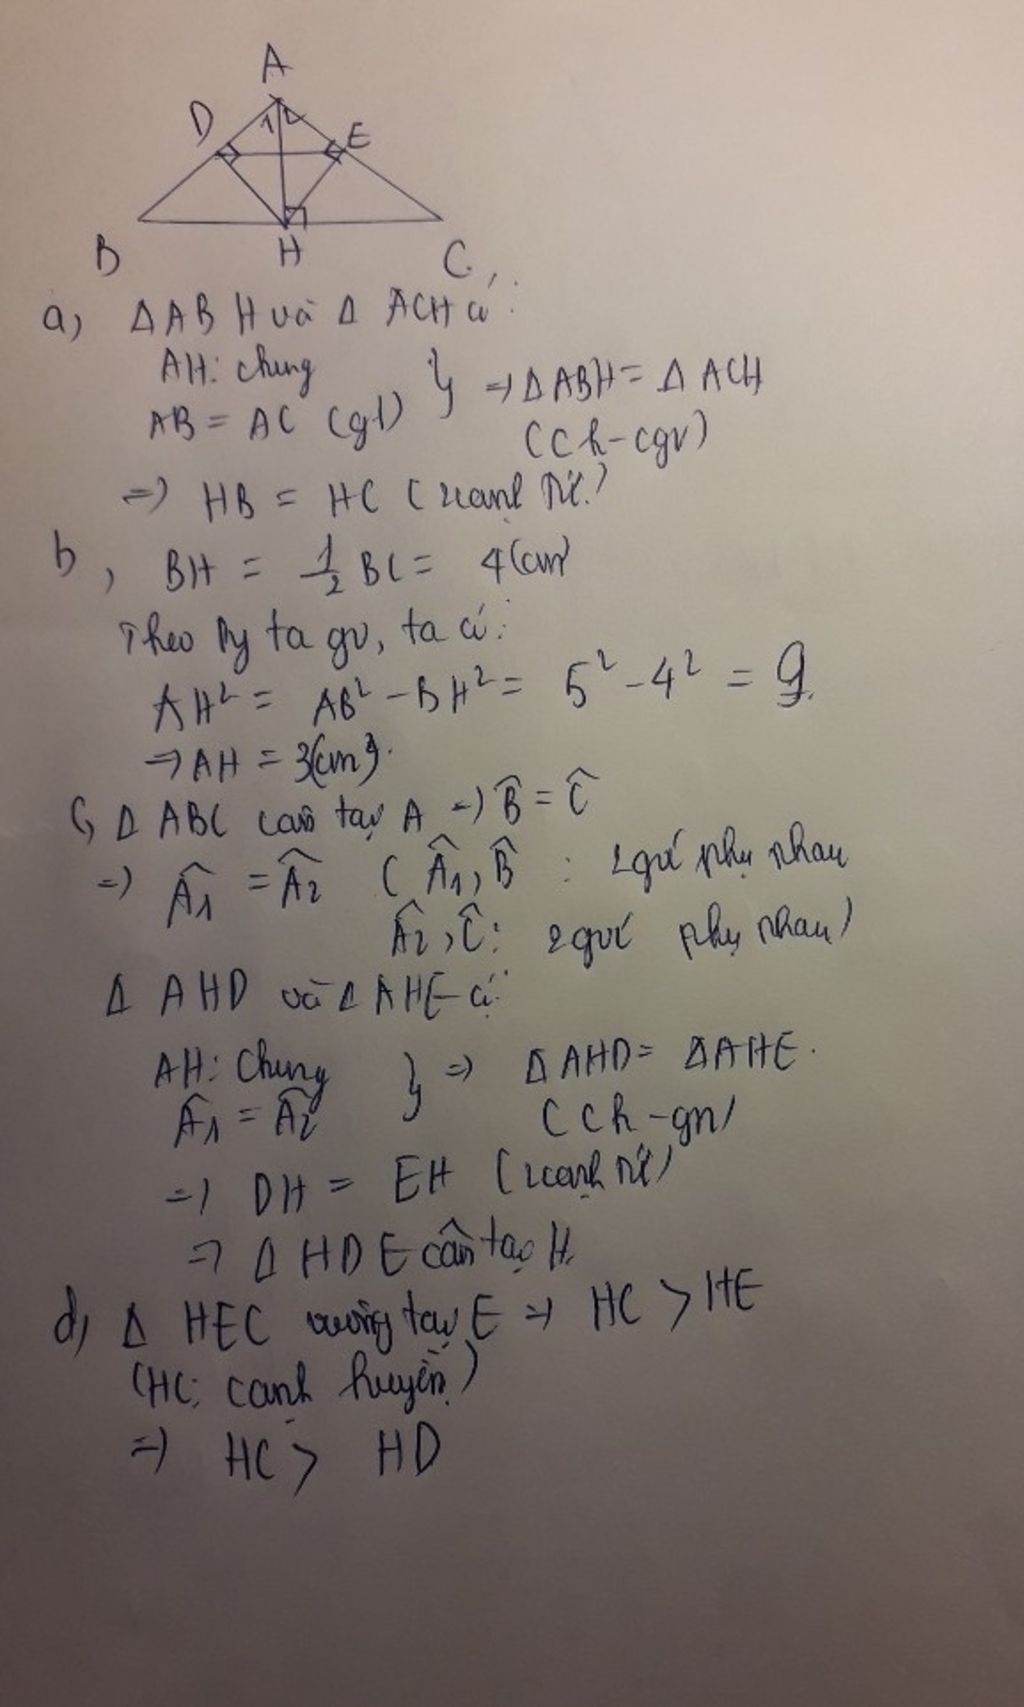 A
D
1 2
E
B
H
C
a, Δ ABH và Δ ACH có:
AH: chung
AB = AC (gt) } => Δ ABH = Δ ACH
(Ch-cgv)
=> HB = HC (2 cạnh t/ứ)
b, BH = 1/2 BC = 4(cm)
Theo Pytago, ta có:
AH² = AB² - BH² = 5² - 4² = 9.
=> AH = 3(cm).
c, Δ ABC cân tại A => B̂ = Ĉ
=> Â1 = Â2 ( Â1, B̂ : 2 góc phụ nhau
Â2, Ĉ: 2 góc phụ nhau)
Δ AHD và Δ AHE có:
AH: Chung } => Δ AHD = Δ AHE.
Â1 = Â2 (Ch-gn)
=> DH = EH (2 cạnh t/ứ)
=> Δ HDE cân tại H.
d, Δ HEC vuông tại E => HC > HE
(HC: cạnh huyền)
=> HC > HD